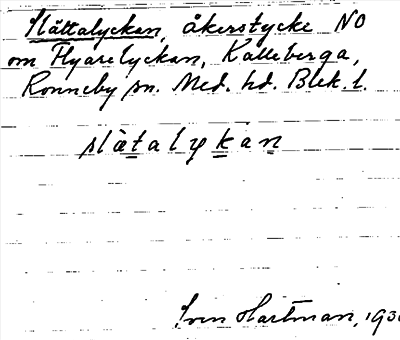 Slättalyckan, åkerstycke NO
om Flyarelyckan, Kalleberga,
Ronneby sn. Med. hd. Blek. l.
slätalykan
Sven Hartman, 193